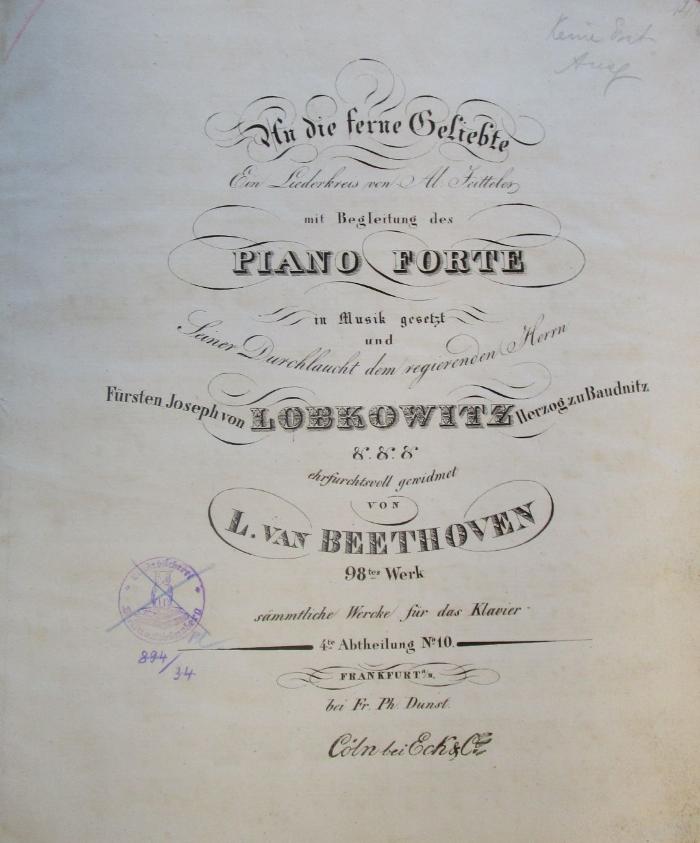 Keine
An die ferne Geliebte
Ein Liederkreis von Al. Jeitteles
mit Begleitung des
PIANO FORTE
in Musik gesetzt
und
Seiner Durchlaucht dem regierenden Herrn
Fürsten Joseph von LOBKOWITZ Herzog zu Baudnitz
&. &. &
ehrfurchtsvoll gewidmet
VON
L. VAN BEETHOVEN
98tes Werk
sämmtliche Wercke für das Klavier
4te Abtheilung No 10.
894/34
FRANKFURT a/M.
bei Fr. Ph. Dunst.
Cöln bei Eck & Co.